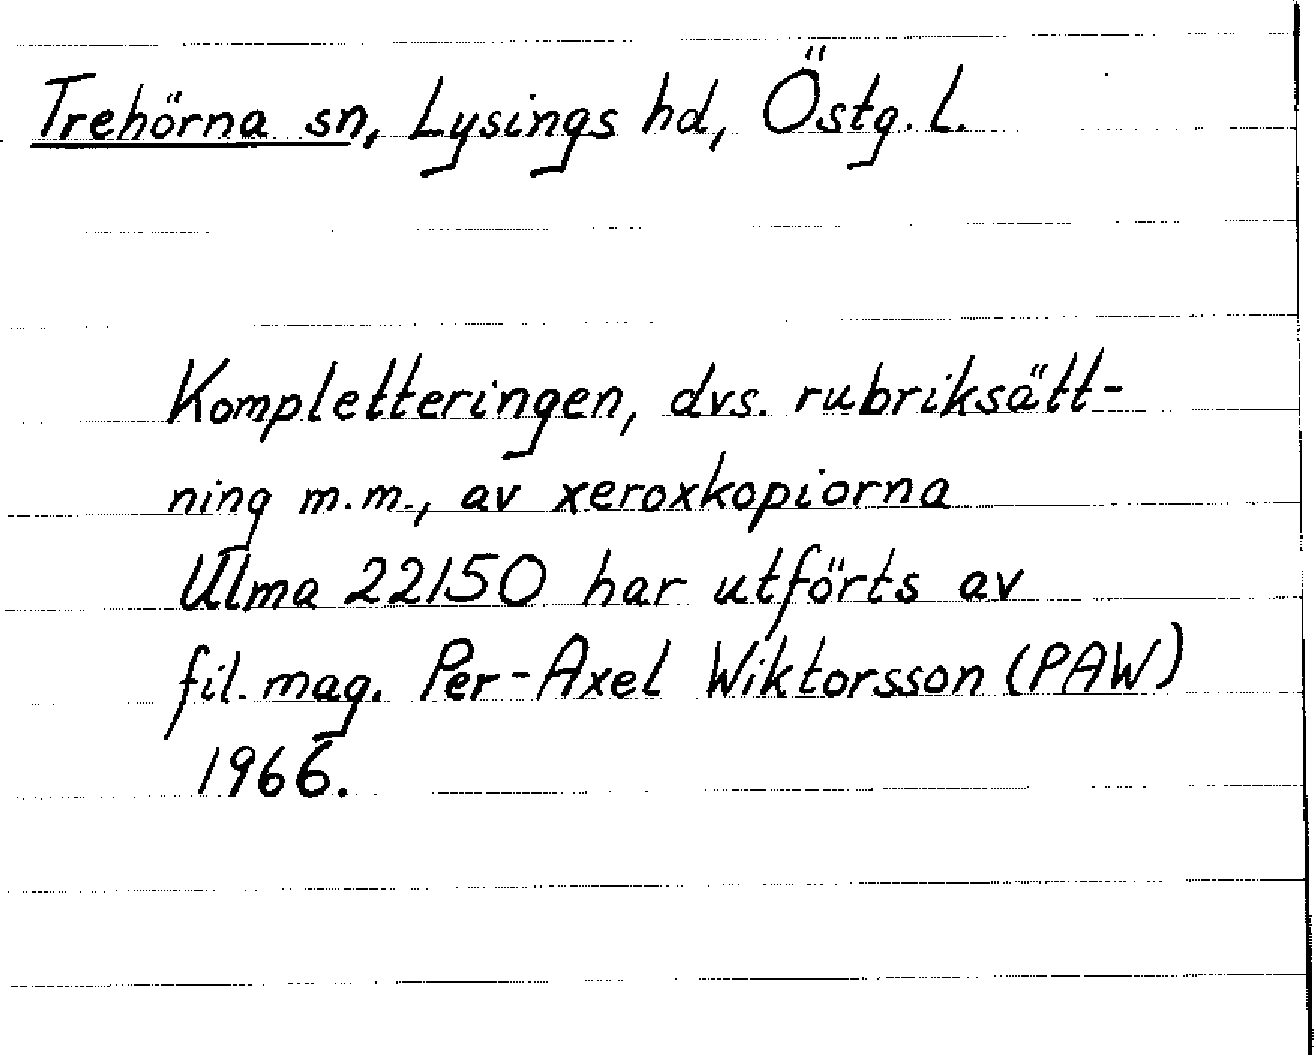 Trehörna sn, Lysings hd, Östg. L.
Kompletteringen, dvs. rubriksätt-
ning m.m., av xeroxkopiorna
Ulma 22150 har utförts av
fil. mag. Per-Axel Wiktorsson (PAW)
1966.